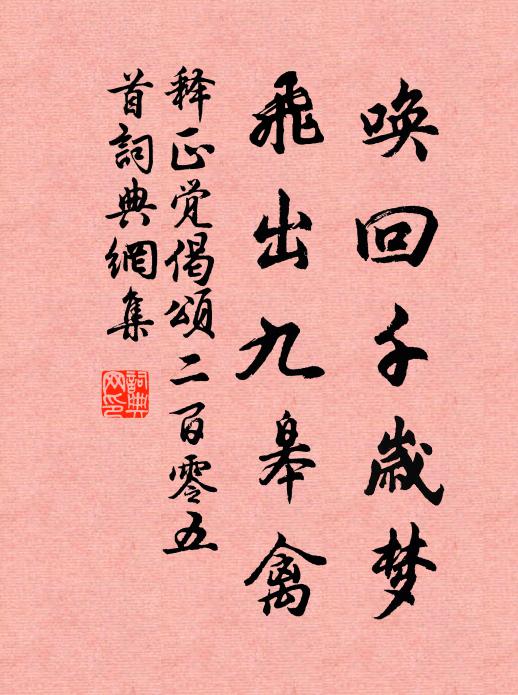 唤回千岁梦
飞出九皋禽
释正觉偈颂二百零五
首词典網集
詞典网印